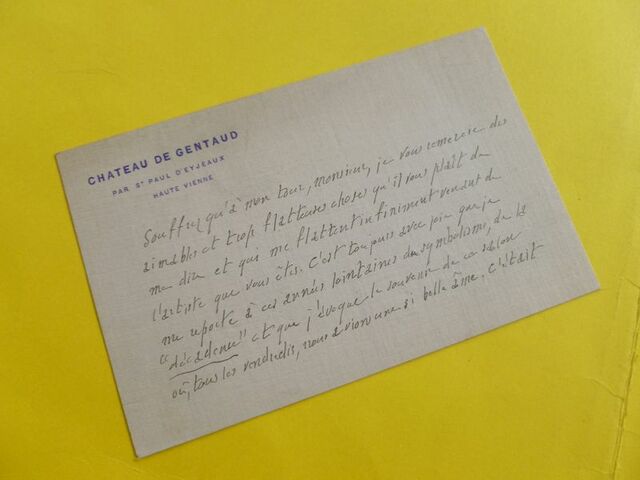 CHATEAU DE GENTAUD
PAR ST PAUL D'EYJEAUX
HAUTE VIENNE
Souffrez qu'à mon tour, monsieur, je vous remercie des
aimables et trop flatteuses choses qu'il vous plaît de
me dire et qui me flattent infiniment venant de
l'artiste que vous êtes. C'est toujours avec joie que je
me reporte à ces années lointaines du symbolisme, de la
"décadence" et que j'évoque le souvenir de ce salon
où, tous les vendredis, nous avions une si belle âme. C'était